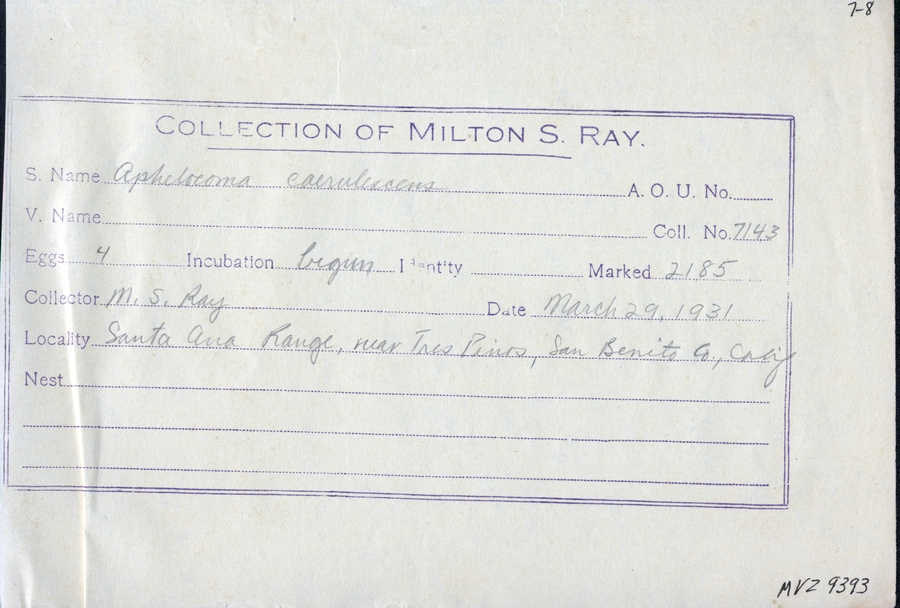 7-8
COLLECTION OF MILTON S. RAY.
S. Name Aphelocoma caerulescens A. O. U. No.
V. Name Coll. No. 7143
Eggs 4 Incubation begun Identity Marked 2185
Collector M. S. Ray Date March 29, 1931
Locality Santa Ana Range, near Tres Pinos, San Benito Co., Calif
Nest
MVZ 9393